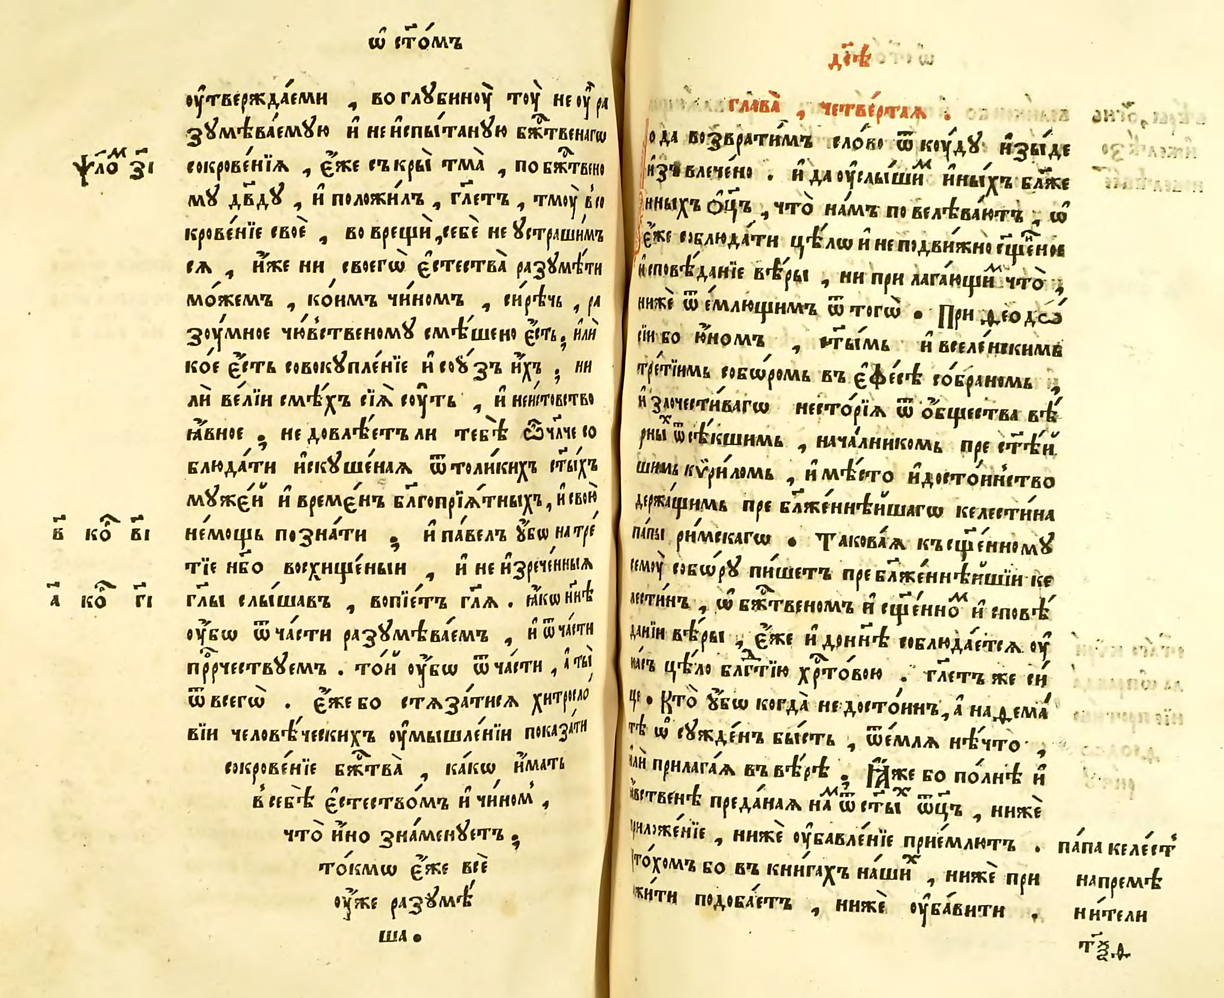 ѡ҆ ст҃о́мъ
оу҆тверждáеми , во глꙋбиноу̀ тоу̀ не оу҆ ра
зꙋмѣвáемꙋю и҆ не и҆спы́танꙋю бж҃твенагѡ
ѱло́м з҃і
сокровéнїѧ , є҆́же съкры̀ тма̀ , по бж҃твено
мꙋ дв҃дꙋ , и҆ положи́лъ , гл҃етъ , тмоу̀ в со
кровéнїе своѐ , во врещѝ , себѐ не ꙋстраши́мъ
сѧ , и҆́же ни своегѡ̀ є҆стества̀ разꙋмѣ́ти
мо́жемъ , ко́имъ чи́номъ , си́рѣчь , ра
зоумное чю́вственомꙋ смѣ́шено є҆́сть ; и҆лѝ
ко́е є҆́сть совокꙋплéнїе и҆ сою́зъ и҆́хъ ; ни
лѝ вéлїи смѣ́хъ сїѧ̀ соу́ть , и҆ неи́стовство
ꙗ҆́вное ; не довлѣ́етъ ли тебѣ̀ ѽ чл҃че со
блюдáти и҆скꙋшéнаѧ ѿ толи́кихъ ст҃ы́хъ
мꙋжéй и҆ времéнъ бл҃гопрїѧ́тныхъ , и҆ свою̀
в҃ ко҃р в҃і
нéмощь познáти ; и҆ пáвелъ ꙋ҆́бѡ на трé
тїе нб҃о восхищéныи , и҆ не и҆зречéнныѧ
а҃ ко҃р г҃і
гл҃ы слы́шавъ , вопїéтъ гл҃ѧ . ꙗ҆́кѡ нн҃ѣ
оу҆́бѡ ѿ чáсти разꙋмѣвáемъ , и҆ ѿ чáсти
прⷪ҇рчествꙋемъ . то́й оу҆́бѡ ѿ чáсти , а҆ ты̀
ѿ всегѡ̀ . є҆́же бо стѧзáтисѧ хитросло́
вїи человѣ́ческихъ оу҆мышлéнїи показáти
сокровéнїе бж҃тва̀ , кáкѡ и҆́мать
в себѣ̀ є҆стество́мъ и҆ чи́ном ,
что̀ и҆́но знáменꙋетъ ;
то́кмѡ є҆́же всѐ
оу҆́же разꙋмѣ́
ша .
дв҃ѣ
глава̀ , четвéртаѧ .
о да возврати́мъ сло́во ѿ кѹ́дꙋ и҆зы́де
и҆звлечéно . и҆ да оу҆слы́шим и҆ны́хъ блажé
нныхъ ѻ҆ц҃ъ , что̀ нáмъ повелѣвáютъ , ѡ҆
є҆́же соблюдáти цѣ́лѡ и҆ не подви́жно сщ҃éное
и҆сповѣ́данїе вѣ́ры , ни прилагáющим что̀ ,
нижѐ ѿéмлющимъ ѿ тогѡ̀ . При ѳеодо́
сїи бо ю҆́номъ , ст҃ы́мь и҆ вселéнскимь
трéтїимь собѡ́ромь въ є҆фéсѣ со́браномь ,
и҆ злочести́вагѡ несто́рїѧ ѿ о҆́бщества вѣ́
рных ѿсѣ́кшимь , начáлникомь прест҃ѣ́й
шимь кѵри́ломь , и҆ мѣ́сто и҆ досто́инство
держáщимь преблажéннѣйшагѡ келести́на
пáпы ри́мскагѡ . Таковáѧ къ сщ҃éнномꙋ
семоу̀ собѡ́рꙋ пи́шетъ преблажéннѣйшїи ке
лести́нъ , ѡ҆ бж҃твеномъ и҆ сщ҃éнном и҆сповѣ́
данїи вѣ́ры , є҆́же и҆ донн҃ѣ соблюдáетсѧ оу҆
нáсъ цѣ́ло блг҃тїю хр҃то́вою . гл҃етъ же си́
це . Кто̀ ꙋ҆́бѡ когда̀ не досто́инъ , а҆наѳéма́
тѣ ѡ҆сꙋждéнъ бы́сть , ѿéмлѧ нѣ́что ,
и҆лѝ прилагáѧ въ вѣ́рѣ ; Ꙗ҆́же бо по́лнѣ и҆
ꙗ҆́вственѣ прéданаѧ нам ѿ ст҃ых ѻ҆ц҃ъ , нижѐ
приложéнїе , нижѐ оу҆бавлéнїе приéмлютъ .
пáпа келéст
что́хомъ бо въ кни́гахъ нáших , нижѐ при
напремѣ
ложи́ти подобáетъ , нижѐ оу҆бáвити .
ни́тели